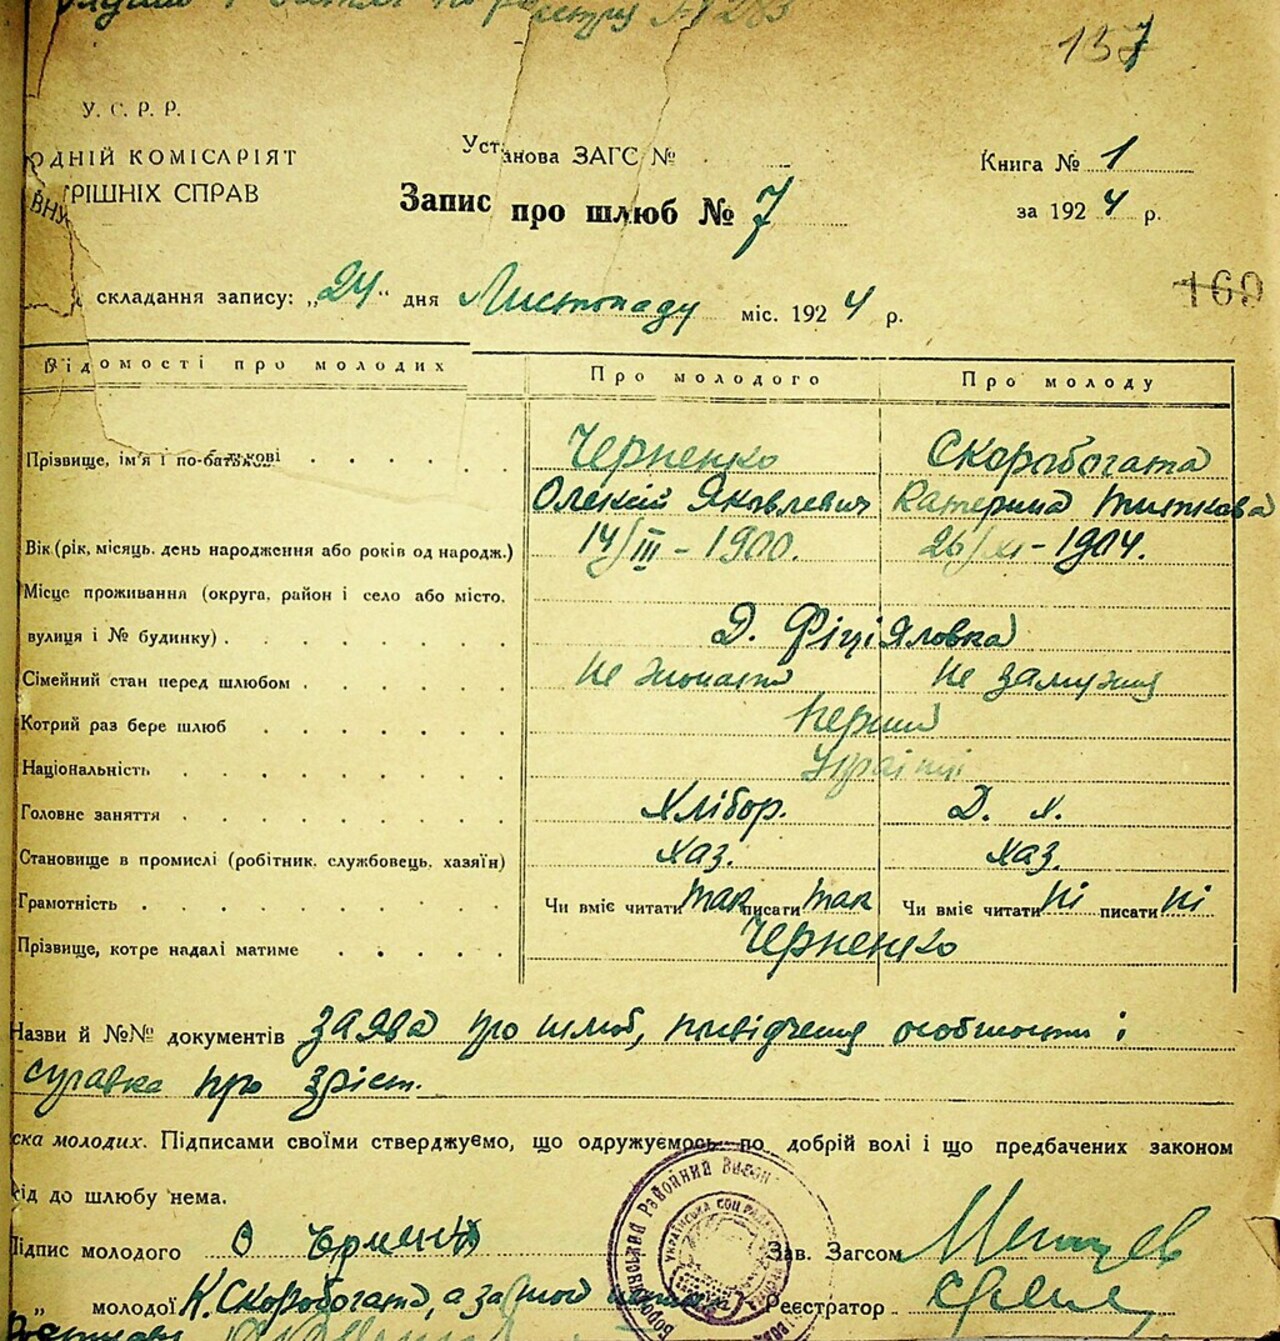 реєстру № 283
137
У. С. Р. Р.
ОДНІЙ КОМІСАРІЯТ
ВНУТРІШНІХ СПРАВ
Установа ЗАГС №
Книга № 1
Запис про шлюб № 7
за 1924 р.
складання запису: „24“ дня Листопаду міс. 1924 р.
169
Відомості про молодих
Про молодого
Про молоду
Прізвище, ім'я і по-батькові
Черненко
Скоробогата
Олексій Яковлевич
Катерина Титкова
Вік (рік, місяць, день народження або років од народж.)
14/III – 1900.
26/XI – 1904.
Місце проживання (округа, район і село або місто,
вулиця і № будинку)
Д. Фіціяловка
Сімейний стан перед шлюбом
не жонати
не замужня
Котрий раз бере шлюб
перший
Національність
Українці
Головне заняття
Хлібор.
Д. х.
Становище в промислі (робітник, службовець, хазяїн)
хаз.
хаз.
Грамотність
Чи вміє читати так писати так
Чи вміє читати ні писати ні
Прізвище, котре надалі матиме
Черненко
Назви й №№ документів заява про шлюб, посвідчення особистости і
справка про зріст.
ска молодих. Підписами своїми стверджуємо, що одружуємось по добрій волі і що предбачених законом
від до шлюбу нема.
Підпис молодого О Чернен
Зав. Загсом
„ молодої К. Скоробогата, а за
Реєстратор